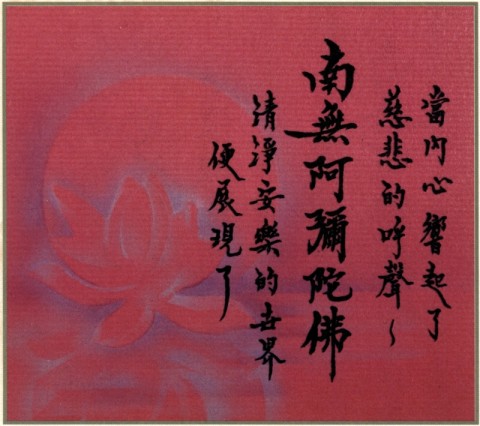 當內心響起了
慈悲的呼聲~
南無阿彌陀佛
清淨安樂的世界
便展現了